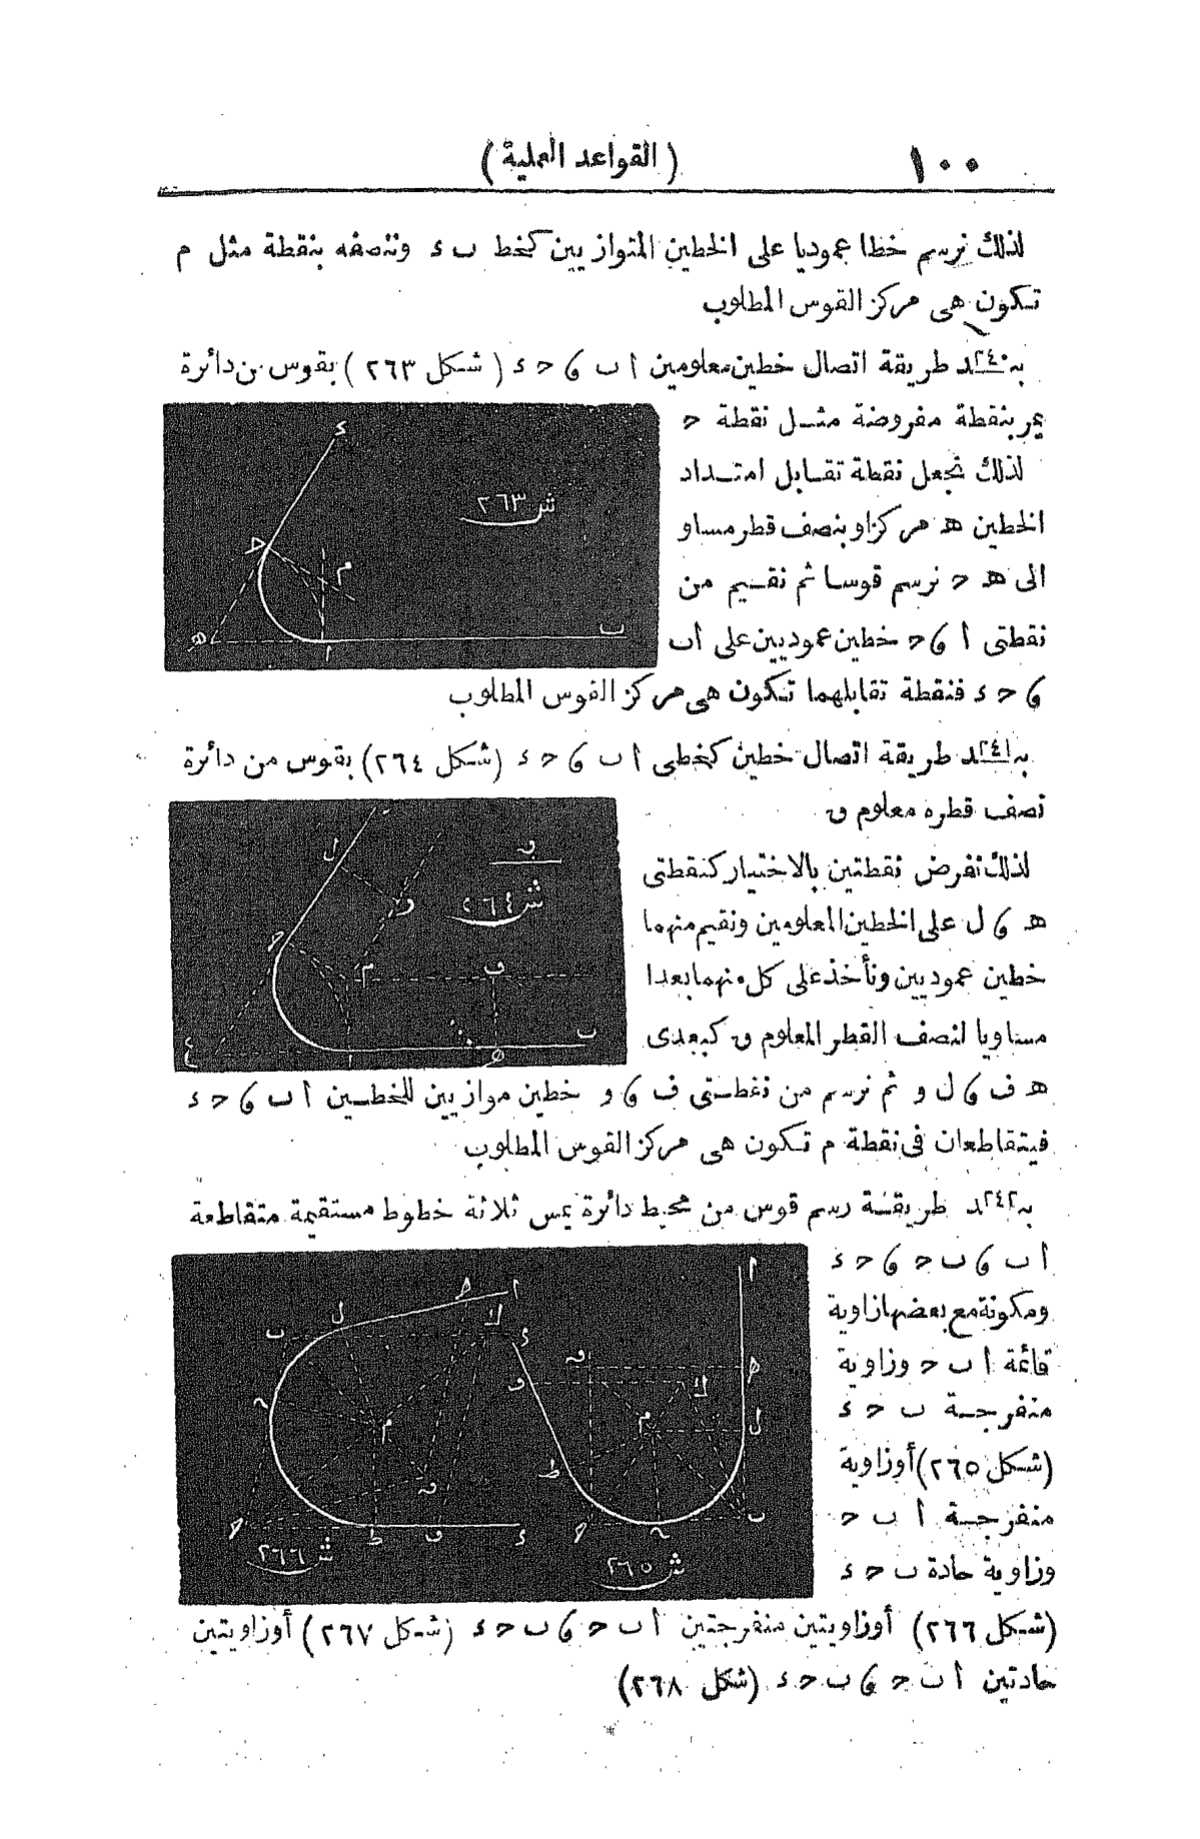 ١٠٠ (القواعد العملية)
لذلك نرسم خطا عموديا على الخطين المتوازيين كخط ب ء وننصفه بنقطة مثل م
تكون هى مركز القوس المطلوب
بـ٢٤٠ـد طريقة اتصال خطين معلومين ا ب و ح ء (شكل ٢٦٣) بقوس من دائرة
يمر بنقطة مفروضة مثل نقطة ح
لذلك نجعل نقطة تقابل امتداد
الخطين هـ مركزا وبنصف قطر مساو
الى هـ ح نرسم قوسا ثم نقيم من
نقطتى ا و ح خطين عموديين على اب
و ح ء فنقطة تقابلهما تكون هى مركز القوس المطلوب
ء
ش ٢٦٣
ح
م
هـ
ا
ب
بـ٢٤١ـد طريقة اتصال خطين كخطى ا ب و ح ء (شكل ٢٦٤) بقوس من دائرة
نصف قطره معلوم ق
لذلك نفرض نقطتين بالاختيار كنقطتى
هـ و ل على الخطين المعلومين ونقيم منهما
خطين عموديين ونأخذ على كل منهما بعدا
مساويا لنصف القطر المعلوم ق كبعدى
هـ ف و ل و ثم نرسم من نقطتى ف و و خطين موازيين للخطين ا ب و ح ء
فيتقاطعان فى نقطة م تكون هى مركز القوس المطلوب
ل
ق
و
ش ٢٦٤
ح
م
ف
ع
ا
هـ
ب
بـ٢٤٢ـد طريقة رسم قوس من محيط دائرة يمس ثلاثة خطوط مستقيمة متقاطعة
ا ب و ب ح و ح ء
ومكونة مع بعضها زاوية
قائمة ا ب ح وزاوية
منفرجة ب ح ء
(شكل ٢٦٥) أو زاوية
منفرجة ا ب ح
وزاوية حادة ب ح ء
(شكل ٢٦٦) أو زاويتين منفرجتين ا ب ح و ب ح ء (شكل ٢٦٧) أو زاويتين
حادتين ا ب ح و ب ح ء (شكل ٢٦٨)
ا
هـ
ل
ك
ب
ء
م
ح
ط
ف
ء
ش ٢٦٦
ا
هـ
ق
ف
ك
ل
م
ط
ب
ح
ش ٢٦٥